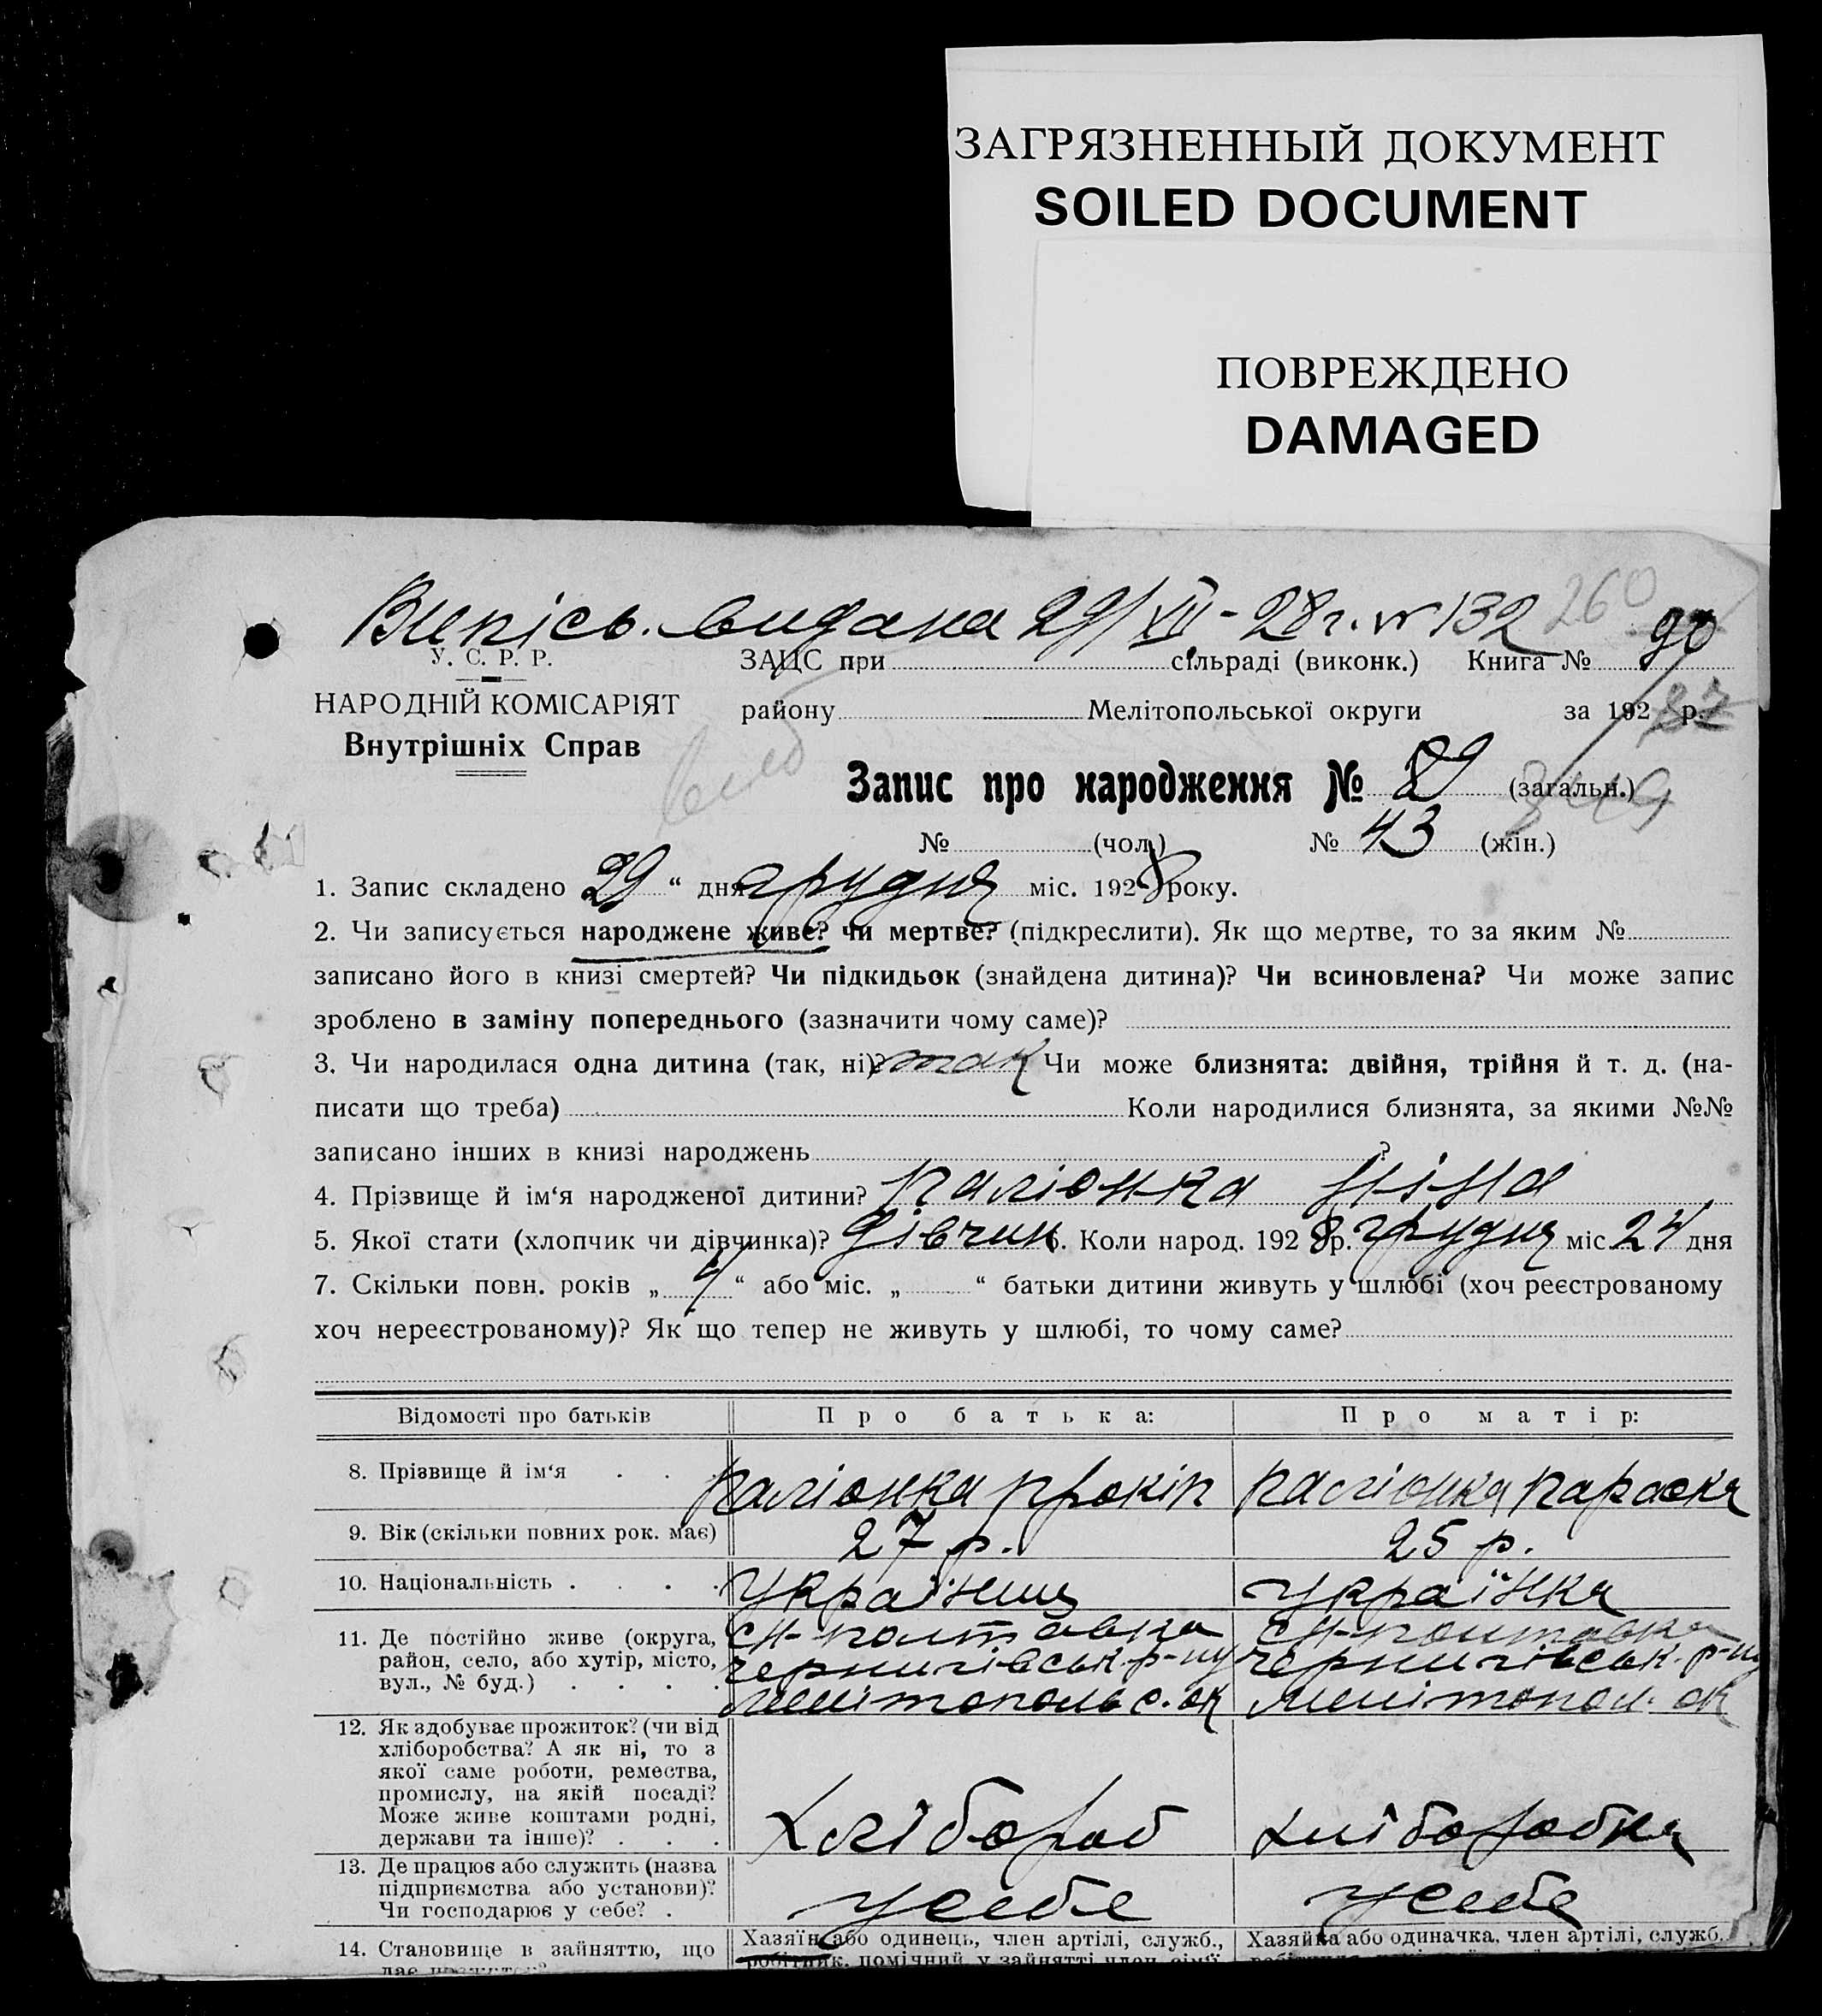 ЗАГРЯЗНЕННЫЙ ДОКУМЕНТ
SOILED DOCUMENT
ПОВРЕЖДЕНО
DAMAGED
Випісь. видана 29/XII-28 г. № 132 260 90
У. С. Р. Р.
ЗАЦС при сільраді (виконк.) Книга №
НАРОДНІЙ КОМІСАРІЯТ
району Мелітопольської округи за 192 р.
Внутрішніх Справ
Запис про народження № 89 (загальн.)
№ (чол.) № 43 (жін.)
1. Запис складено 29 “ дня грудня міс. 1928 року.
2. Чи записується народжене живе? чи мертве? (підкреслити). Як що мертве, то за яким №
записано його в книзі смертей? Чи підкидьок (знайдена дитина)? Чи всиновлена? Чи може запис
зроблено в заміну попереднього (зазначити чому саме)?
3. Чи народилася одна дитина (так, ні)? так Чи може близнята: двійня, трійня й т. д. (на-
писати що треба) Коли народилися близнята, за якими №№
записано інших в книзі народжень ?
4. Прізвище й ім‘я народженої дитини? Паліонка Ніна
5. Якої стати (хлопчик чи дівчинка)? Дівчин 6. Коли народ. 1928 р. грудня міс. 24 дня
7. Скільки повн. років „ 4 “ або міс. „ “ батьки дитини живуть у шлюбі (хоч реєстрованому
хоч нереєстрованому)? Як що тепер не живуть у шлюбі, то чому саме?
Відомості про батьків Про батька: Про матір:
8. Прізвище й ім‘я . . Паліонка Прокіп Паліонка Параска
9. Вік (скільки повних рок. має) 27 р. 25 р.
10. Національність . . . . Українець Українка
11. Де постійно живе (округа, район, село, або хутір, місто, вул., № буд.) . . . .
сн-полтавка
чернигівськ. р-ну
мелітопольс. ок
сн-полтавка
чернигівськ. р-ну
мелітопол. ок
12. Як здобуває прожиток? (чи від
хліборобства? А як ні, то з
якої саме роботи, ремества,
промислу, на якій посаді?
Може живе коштами родні,
держави та інше)? . . . Хлібороб Хліборобка
13. Де працює або служить (назва
підприємства або установи)?
Чи господарює у себе? . У себе У себе
14. Становище в зайняттю, що Хазяїн або одинець, член артілі, служб., Хазяйка або одиначка, член артілі, служб.
робітник, помічний у зайнятті член сім'ї